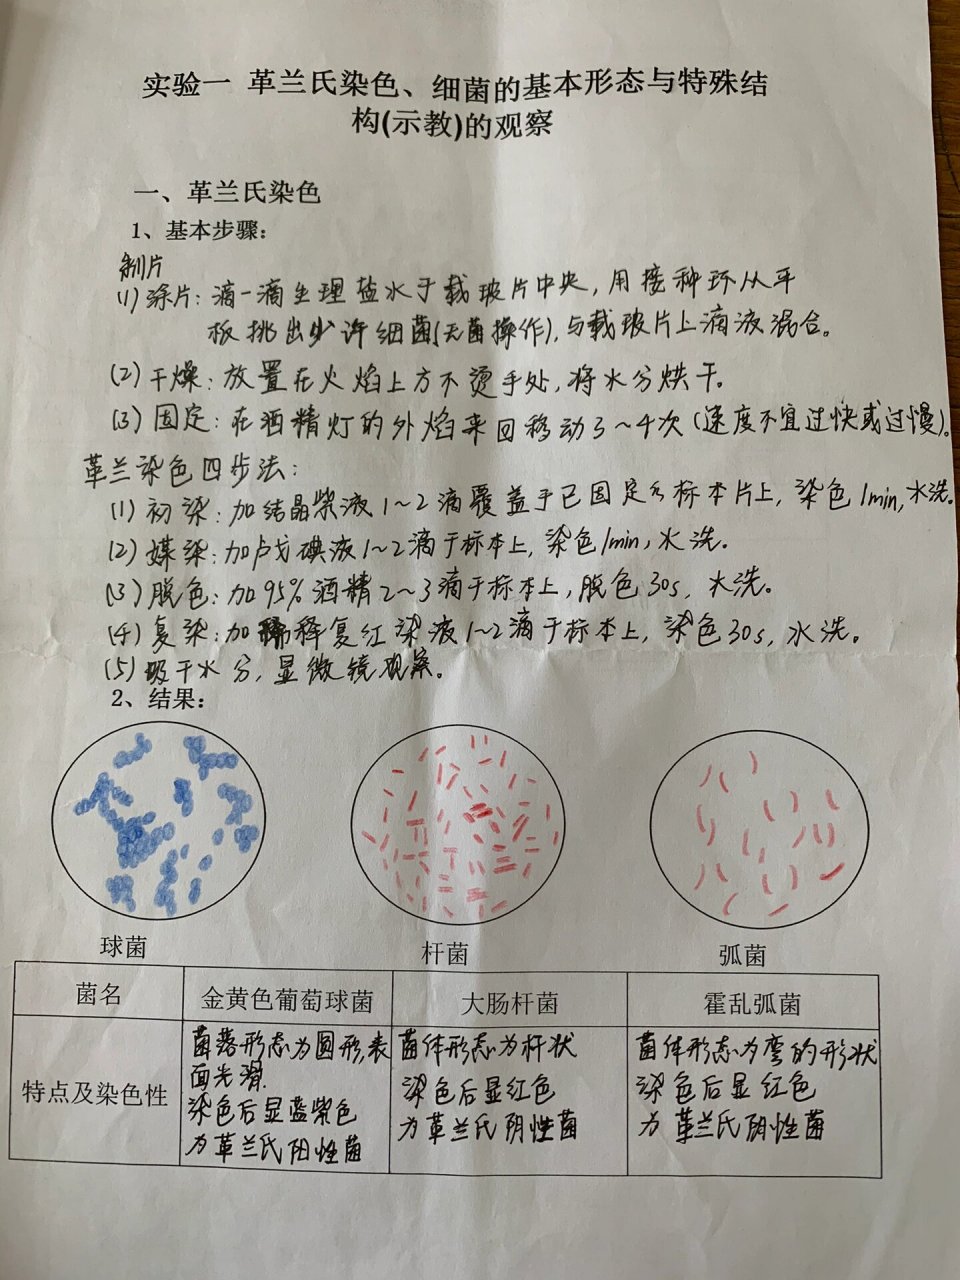 实验一 革兰氏染色、细菌的基本形态与特殊结
构(示教)的观察
一、革兰氏染色
1、基本步骤：
制片
(1) 涂片：滴一滴生理盐水于载玻片中央，用接种环从平
板挑出少许细菌(无菌操作)，与载玻片上滴液混合。
(2) 干燥：放置在火焰上方不烫手处，将水分烘干。
(3) 固定：在酒精灯的外焰来回移动3～4次（速度不宜过快或过慢）。
革兰染色四步法：
(1) 初染：加结晶紫液1～2滴覆盖于已固定的标本片上，染色1min，水洗。
(2) 媒染：加卢戈碘液1～2滴于标本上，染色1min，水洗。
(3) 脱色：加95%酒精2～3滴于标本上，脱色30s，水洗。
(4) 复染：加稀释复红染液1～2滴于标本上，染色30s，水洗。
(5) 吸干水分，显微镜观察。
2、结果：
球菌 杆菌 弧菌
菌名 金黄色葡萄球菌 大肠杆菌 霍乱弧菌
特点及染色性
菌落形态为圆形表
面光滑.
染色后显蓝紫色
为革兰氏阳性菌
菌体形态为杆状
染色后显红色
为革兰氏阴性菌
菌体形态为弯的形状
染色后显红色
为革兰氏阴性菌